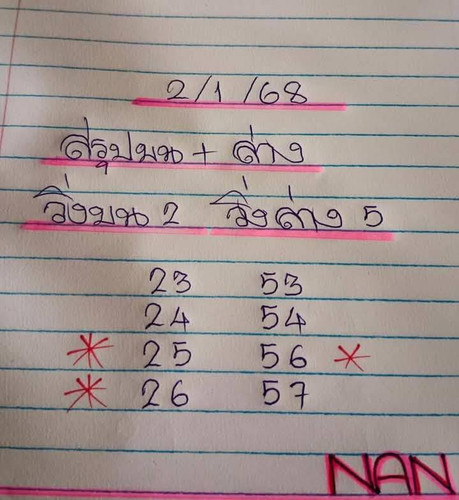 2/1/68
สรุปบน + ล่าง
วิ่งบน 2 วิ่งล่าง 5
23 53
24 54
* 25 56 *
* 26 57
NAN